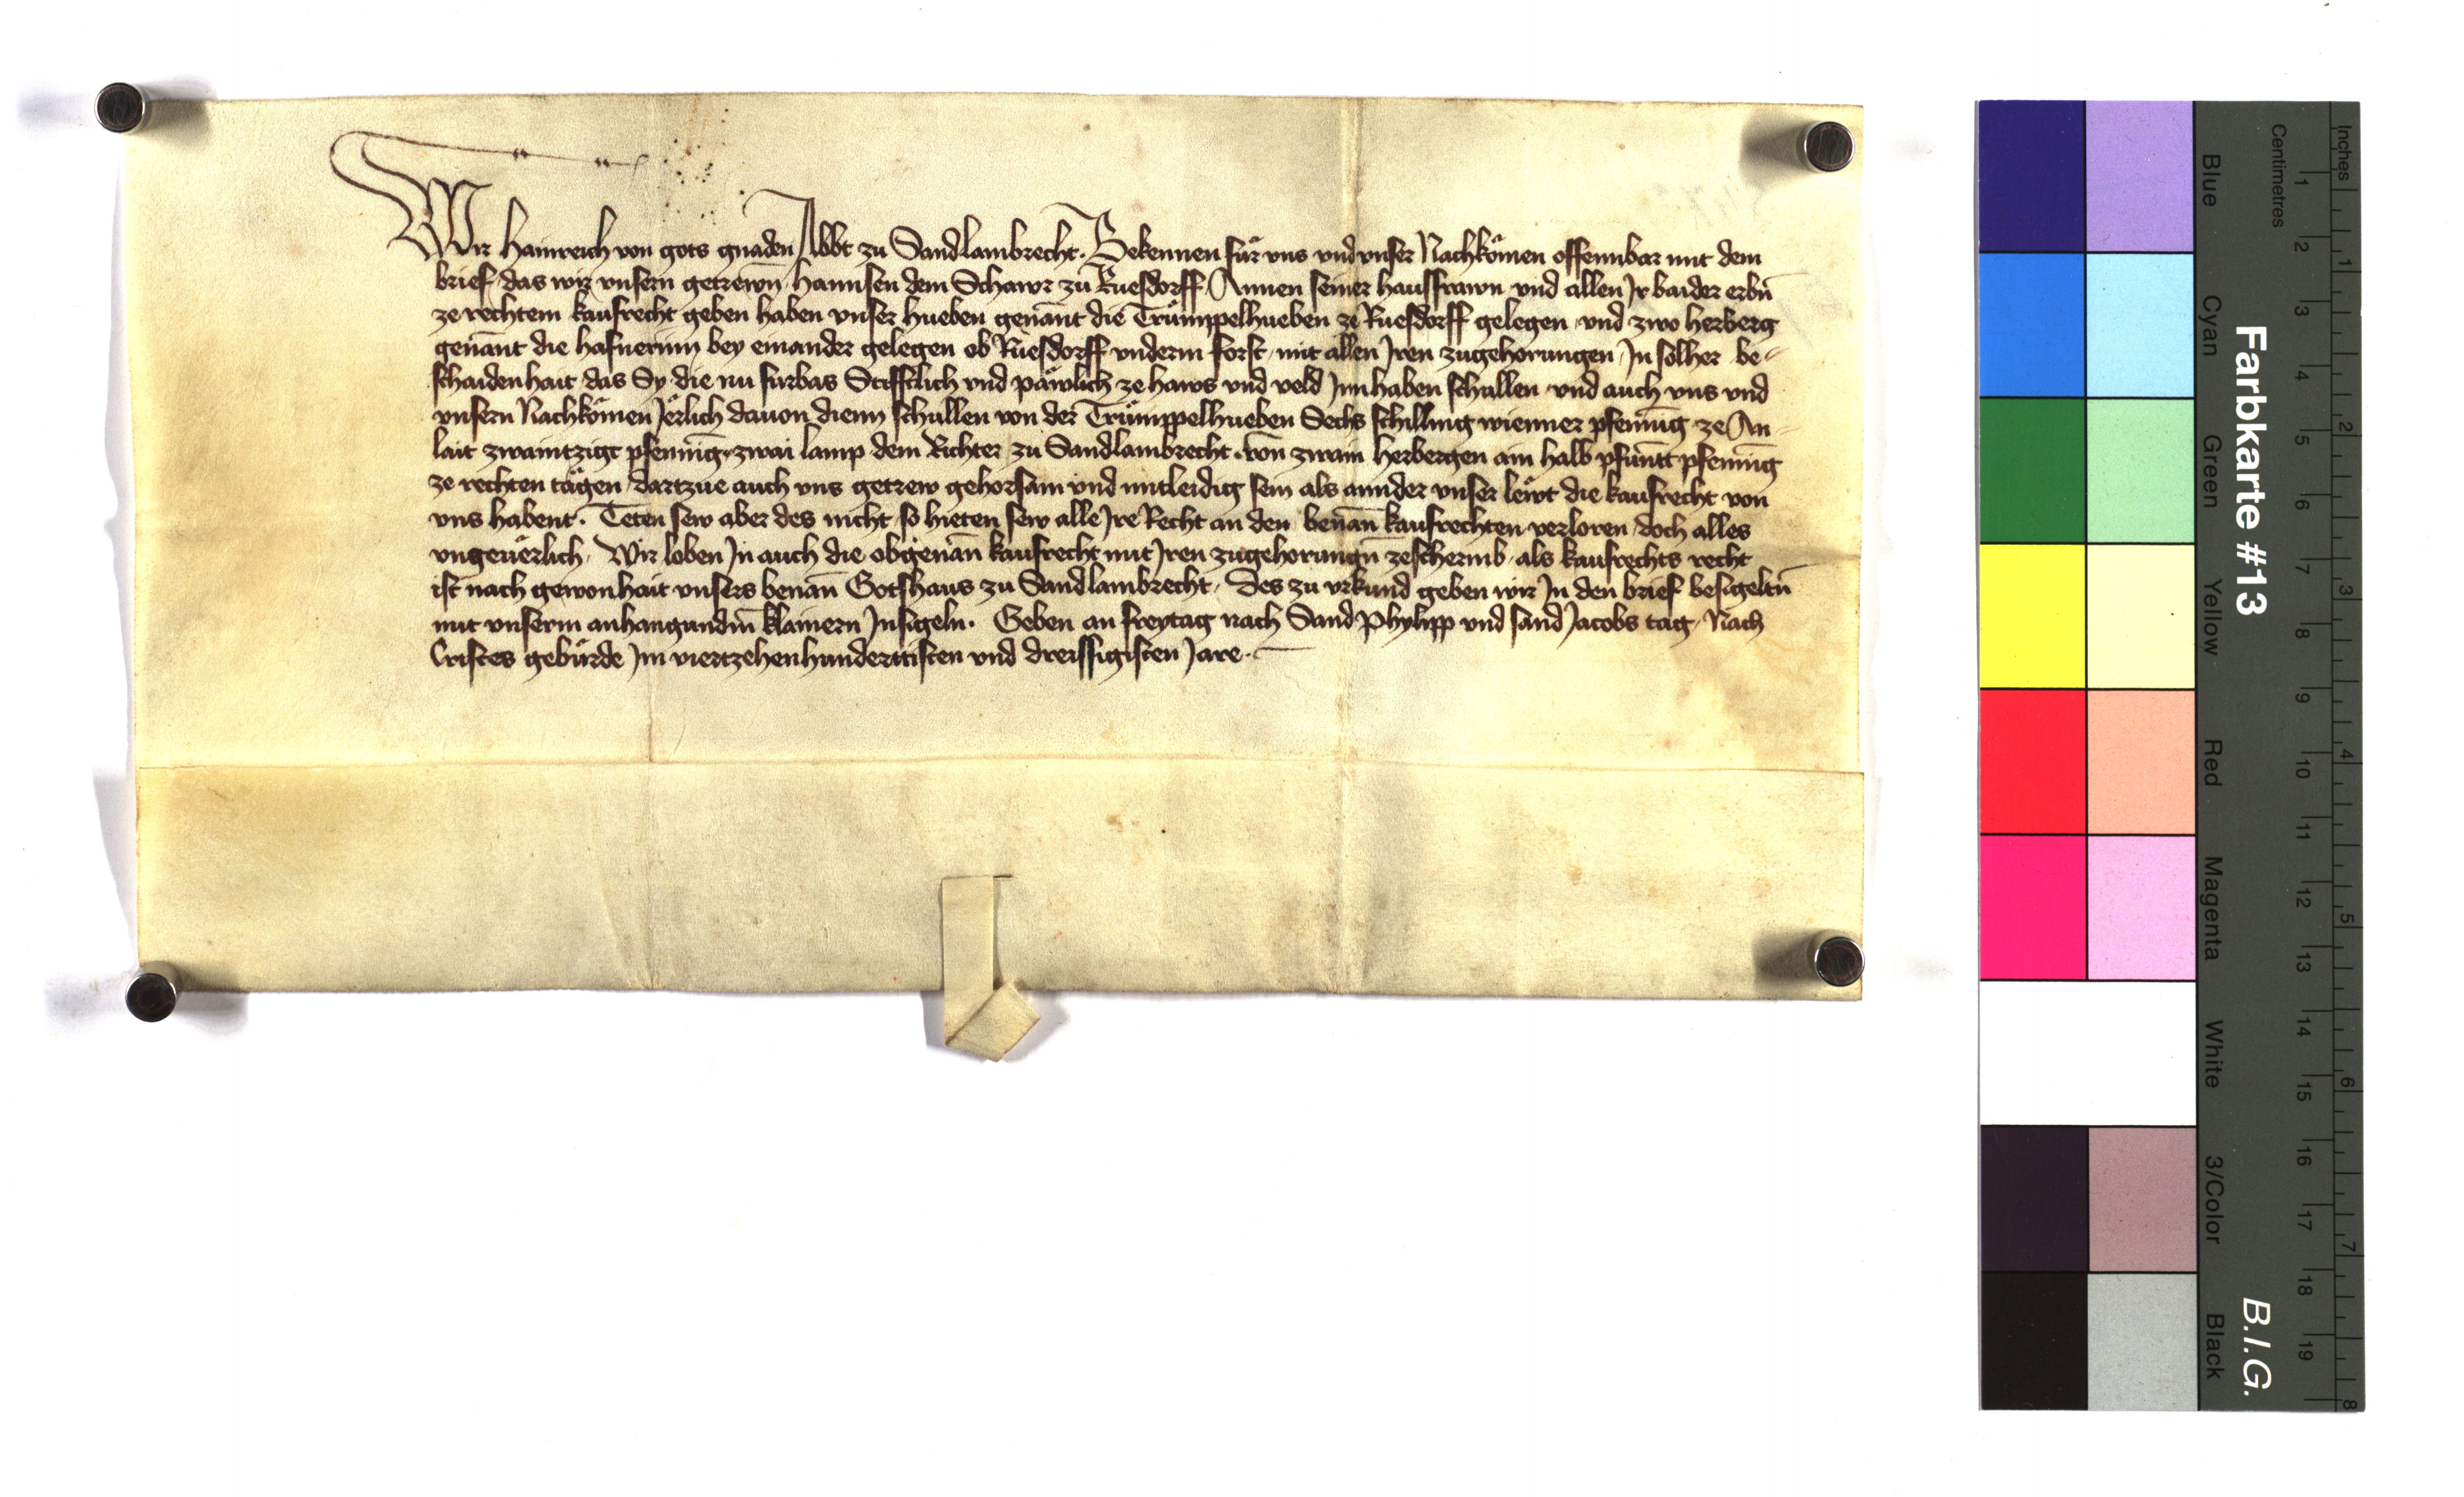 Wir Hainreich von gots gnaden Abbt zu Sandlambrecht. Bekennen für vns vnd vnser Nachkomen offennbar mit dem
brief das wir vnsern getrewn Hannsen dem Schawr zu Ruesdorff Annen seiner hausfrawn vnd allen Jr baider erbn̄
ze rechtem kaufrecht geben haben vnser hueben genan̄t die Trümppelhueben ze Ruesdorff gelegen vnd zwo herberg
genan̄t die hafnerinn bey einander gelegen ob Ruesdorff vnderm forst mit allen Jren zugehorungen Jn solher be-
schaidenhait das Sy die nu furbas Stifftlich vnd päwlich ze haws vnd veld Jnnhaben schullen vnd auch vns vnd
vnsern Nachkömen Jerlich dauon dienn schullen von der Trümppelhueben Sechs schilling wienner pfennīg ze An-
lait zwaintzigt pfennīg zwai lamp dem Richter zu Sandlambrecht. von zwain herbergen ain halb pfuntt pfennīg
ze rechten tägen dartzue auch vns getrew gehorsam vnd mitleidig sein als annder vnser lewt die kaufrecht von
vns habent. Teten sew aber des nicht so hieten sew alle Jre Recht an den benan̄ kaufrechten verloren doch alles
vngeuerlich. Wir loben Jn auch die obgenan̄ kaufrecht mit Jren zugehorungn̄ ze schermb als kaufrechts recht
ist nach gewonhait vnsers benan̄ Gotshaus zu Sandlambrecht. Des zu vrkund geben wir Jn den brief besigeltn̄
mit vnserm anhangundm̄ klainern Jnsigeln. Geben an freytag nach Sand Phylipp vnd sand Jacobs tag Nach
Cristes gebürde Jm viertzehenhunderttisten vnd dreissigisten Jare.
Farbkarte #13
B.I.G.
Inches
Centimetres
Blue Cyan Green Yellow Red Magenta White 3/Color Black
1 2 3 4 5 6 7 8 9 10 11 12 13 14 15 16 17 18 19
1 2 3 4 5 6 7 8